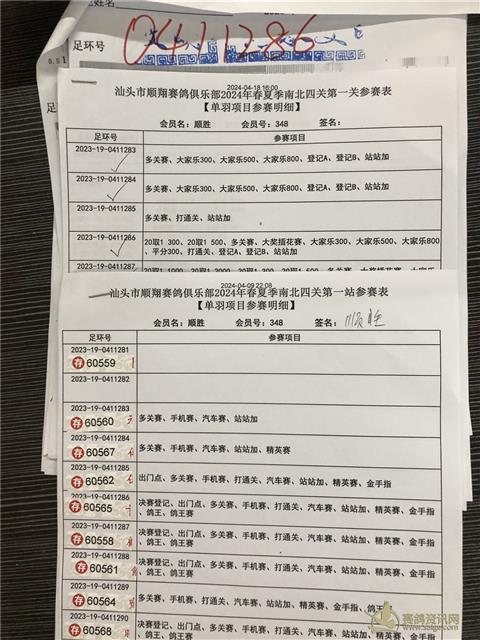 足环号
0411286
2024-04-18 16:00
汕头市顺翔赛鸽俱乐部2024年春夏季南北四关第一关参赛表
【单羽项目参赛明细】
会员名：顺胜 会员号：348 签名：
足环号 参赛项目
2023-19-0411283 多关赛、大家乐300、大家乐500、大家乐800、登记A、登记B、站站加
2023-19-0411284 多关赛、大家乐300、大家乐500、大家乐800、登记A、登记B、站站加
2023-19-0411285 多关赛、打通关、站站加
2023-19-0411286 20取1 300、20取1 500、多关赛、大奖插花赛、大家乐300、大家乐500、大家乐800
、平分300、打通关、登记A、登记B、站站加
2023-19-0411287
2024-04-09 22:08
汕头市顺翔赛鸽俱乐部2024年春夏季南北四关第一站参赛表
【单羽项目参赛明细】
会员名：顺胜 会员号：348 签名：顺胜
足环号 参赛项目
2023-19-0411281
存 60559
2023-19-0411282
2023-19-0411283
存 60560 多关赛、手机赛、汽车赛、站站加
2023-19-0411284
存 60567 多关赛、手机赛、汽车赛、站站加、精英赛
2023-19-0411285
存 60562 出门点、多关赛、手机赛、打通关、汽车赛、站站加、精英赛、金手指
2023-19-0411286
存 60565 决赛登记、出门点、多关赛、手机赛、打通关、汽车赛、站站加、精英赛、金手指
、鸽王、鸽王赛
2023-19-0411287
存 60558 决赛登记、出门点、多关赛、手机赛、打通关、汽车赛、站站加、精英赛、金手指
、鸽王、鸽王赛
2023-19-0411288
存 60561 决赛登记、出门点、多关赛、手机赛、打通关、汽车赛、站站加、精英赛、金手指
、鸽王、鸽王赛
2023-19-0411289
存 60564 多关赛、手机赛、打通关、汽车赛、站站加、精英赛、金手指、鸽王
2023-19-0411290
存 60568 决赛登记、出门点、多关赛、手机赛、打通关、汽车赛、站站加、精英赛、金手指
、鸽王、鸽王赛
赛鸽资讯网